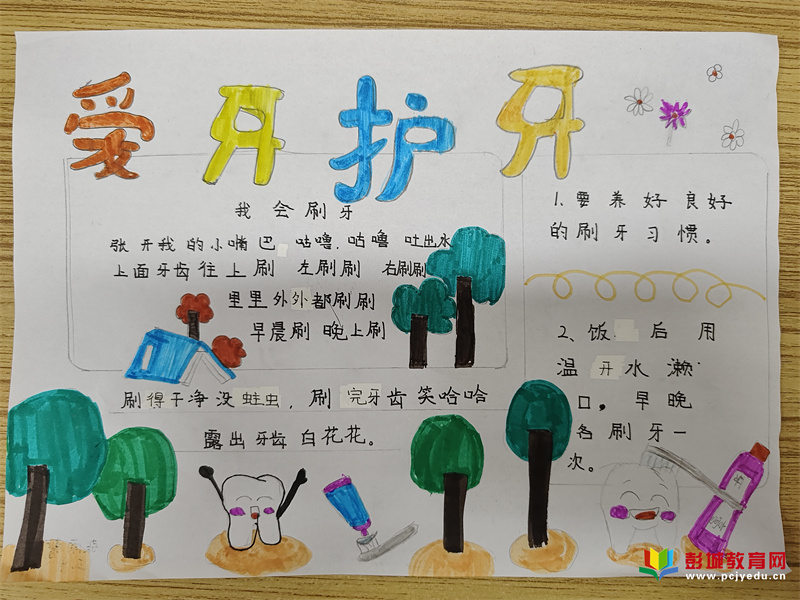 爱牙护牙
我会刷牙
张开我的小喃巴 咕噜.咕噜 吐出水
上面牙齿往上刷 左刷刷 右刷刷
里里外外都刷刷
早晨刷 晚上刷
刷得干净没蛀虫，刷完牙齿笑哈哈
露出牙齿白花花。
1.要养好良好
的刷牙习惯。
2、饭后用
温开水濑
口。早晚
各刷牙一
次。
彭城教育网
www.pcjyedu.cn